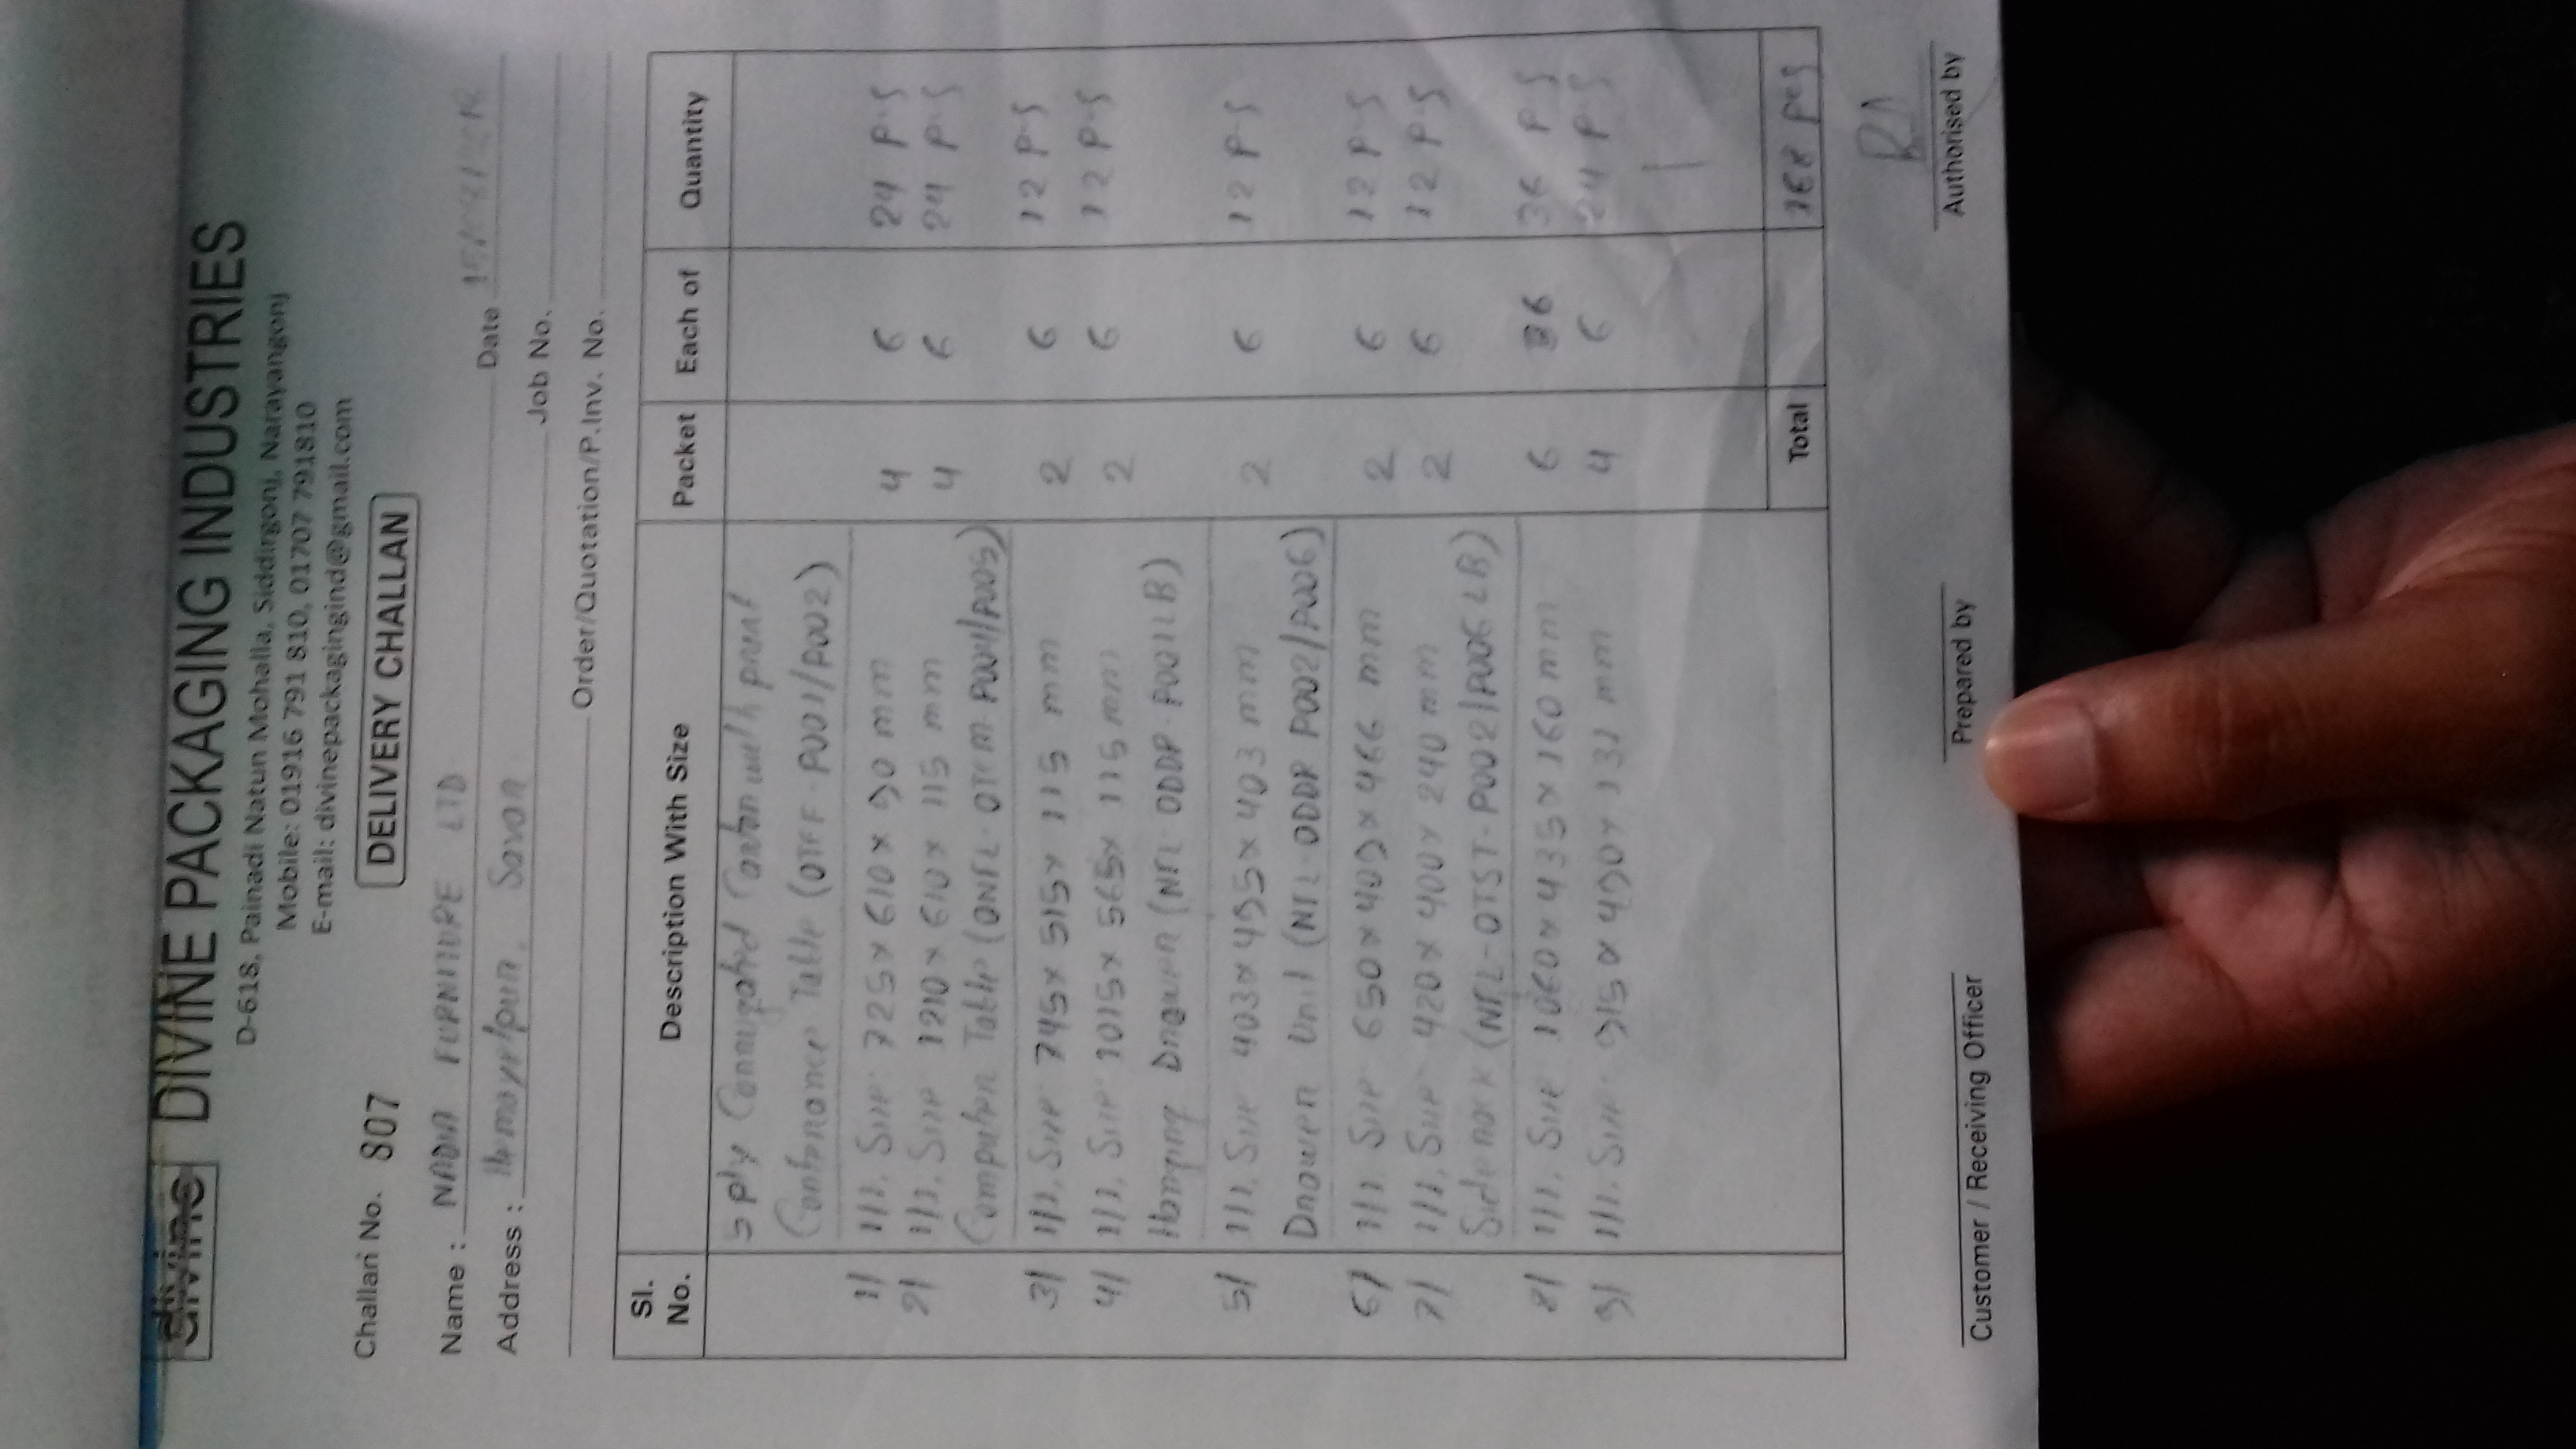 divine DIVINE PACKAGING INDUSTRIES
D-618, Painadi Natun Mohalla, Siddirgonj, Narayangonj
Mobile: 01916 791 810, 01707 791810
E-mail: divinepackagingind@gmail.com
Challan No. 807 DELIVERY CHALLAN
Name : NADIA FURNITURE LTD
Date
Address : Hemayetpur, Savar
Job No.
Order/Quotation/P.Inv. No.
Sl. No. Description With Size Packet Each of Quantity
5 ply Corrugated Carton with print
Conference Table (OTFF-P001/P002)
1/ 1/1. Size 725 x 610 x 90 mm 4 6 24 P-S
2/ 1/1. Size 1210 x 610 x 115 mm 4 6 24 P-S
Computer Table (ONFL-OTCM-P004/P005)
3/ 1/1. Size 745 x 515 x 115 mm 2 6 12 P-S
4/ 1/1. Size 1015 x 565 x 115 mm 2 6 12 P-S
Hanging Drawer (NFL-ODDP-P001LB)
5/ 1/1. Size 403 x 495 x 403 mm 2 6 12 P-S
Drawer Unit (NFL-ODDP P002/P006)
6/ 1/1. Size 650 x 409 x 466 mm 2 6 12 P-S
7/ 1/1. Size 420 x 400 x 240 mm 2 6 12 P-S
Side rack (NFL-OTST-P002/P006 LB)
8/ 1/1. Size 1060 x 435 x 160 mm 6 6 36 P-S
9/ 1/1. Size 915 x 490 x 131 mm 4 6 24 P-S
Total 168 pcs
Customer / Receiving Officer Prepared by Authorised by